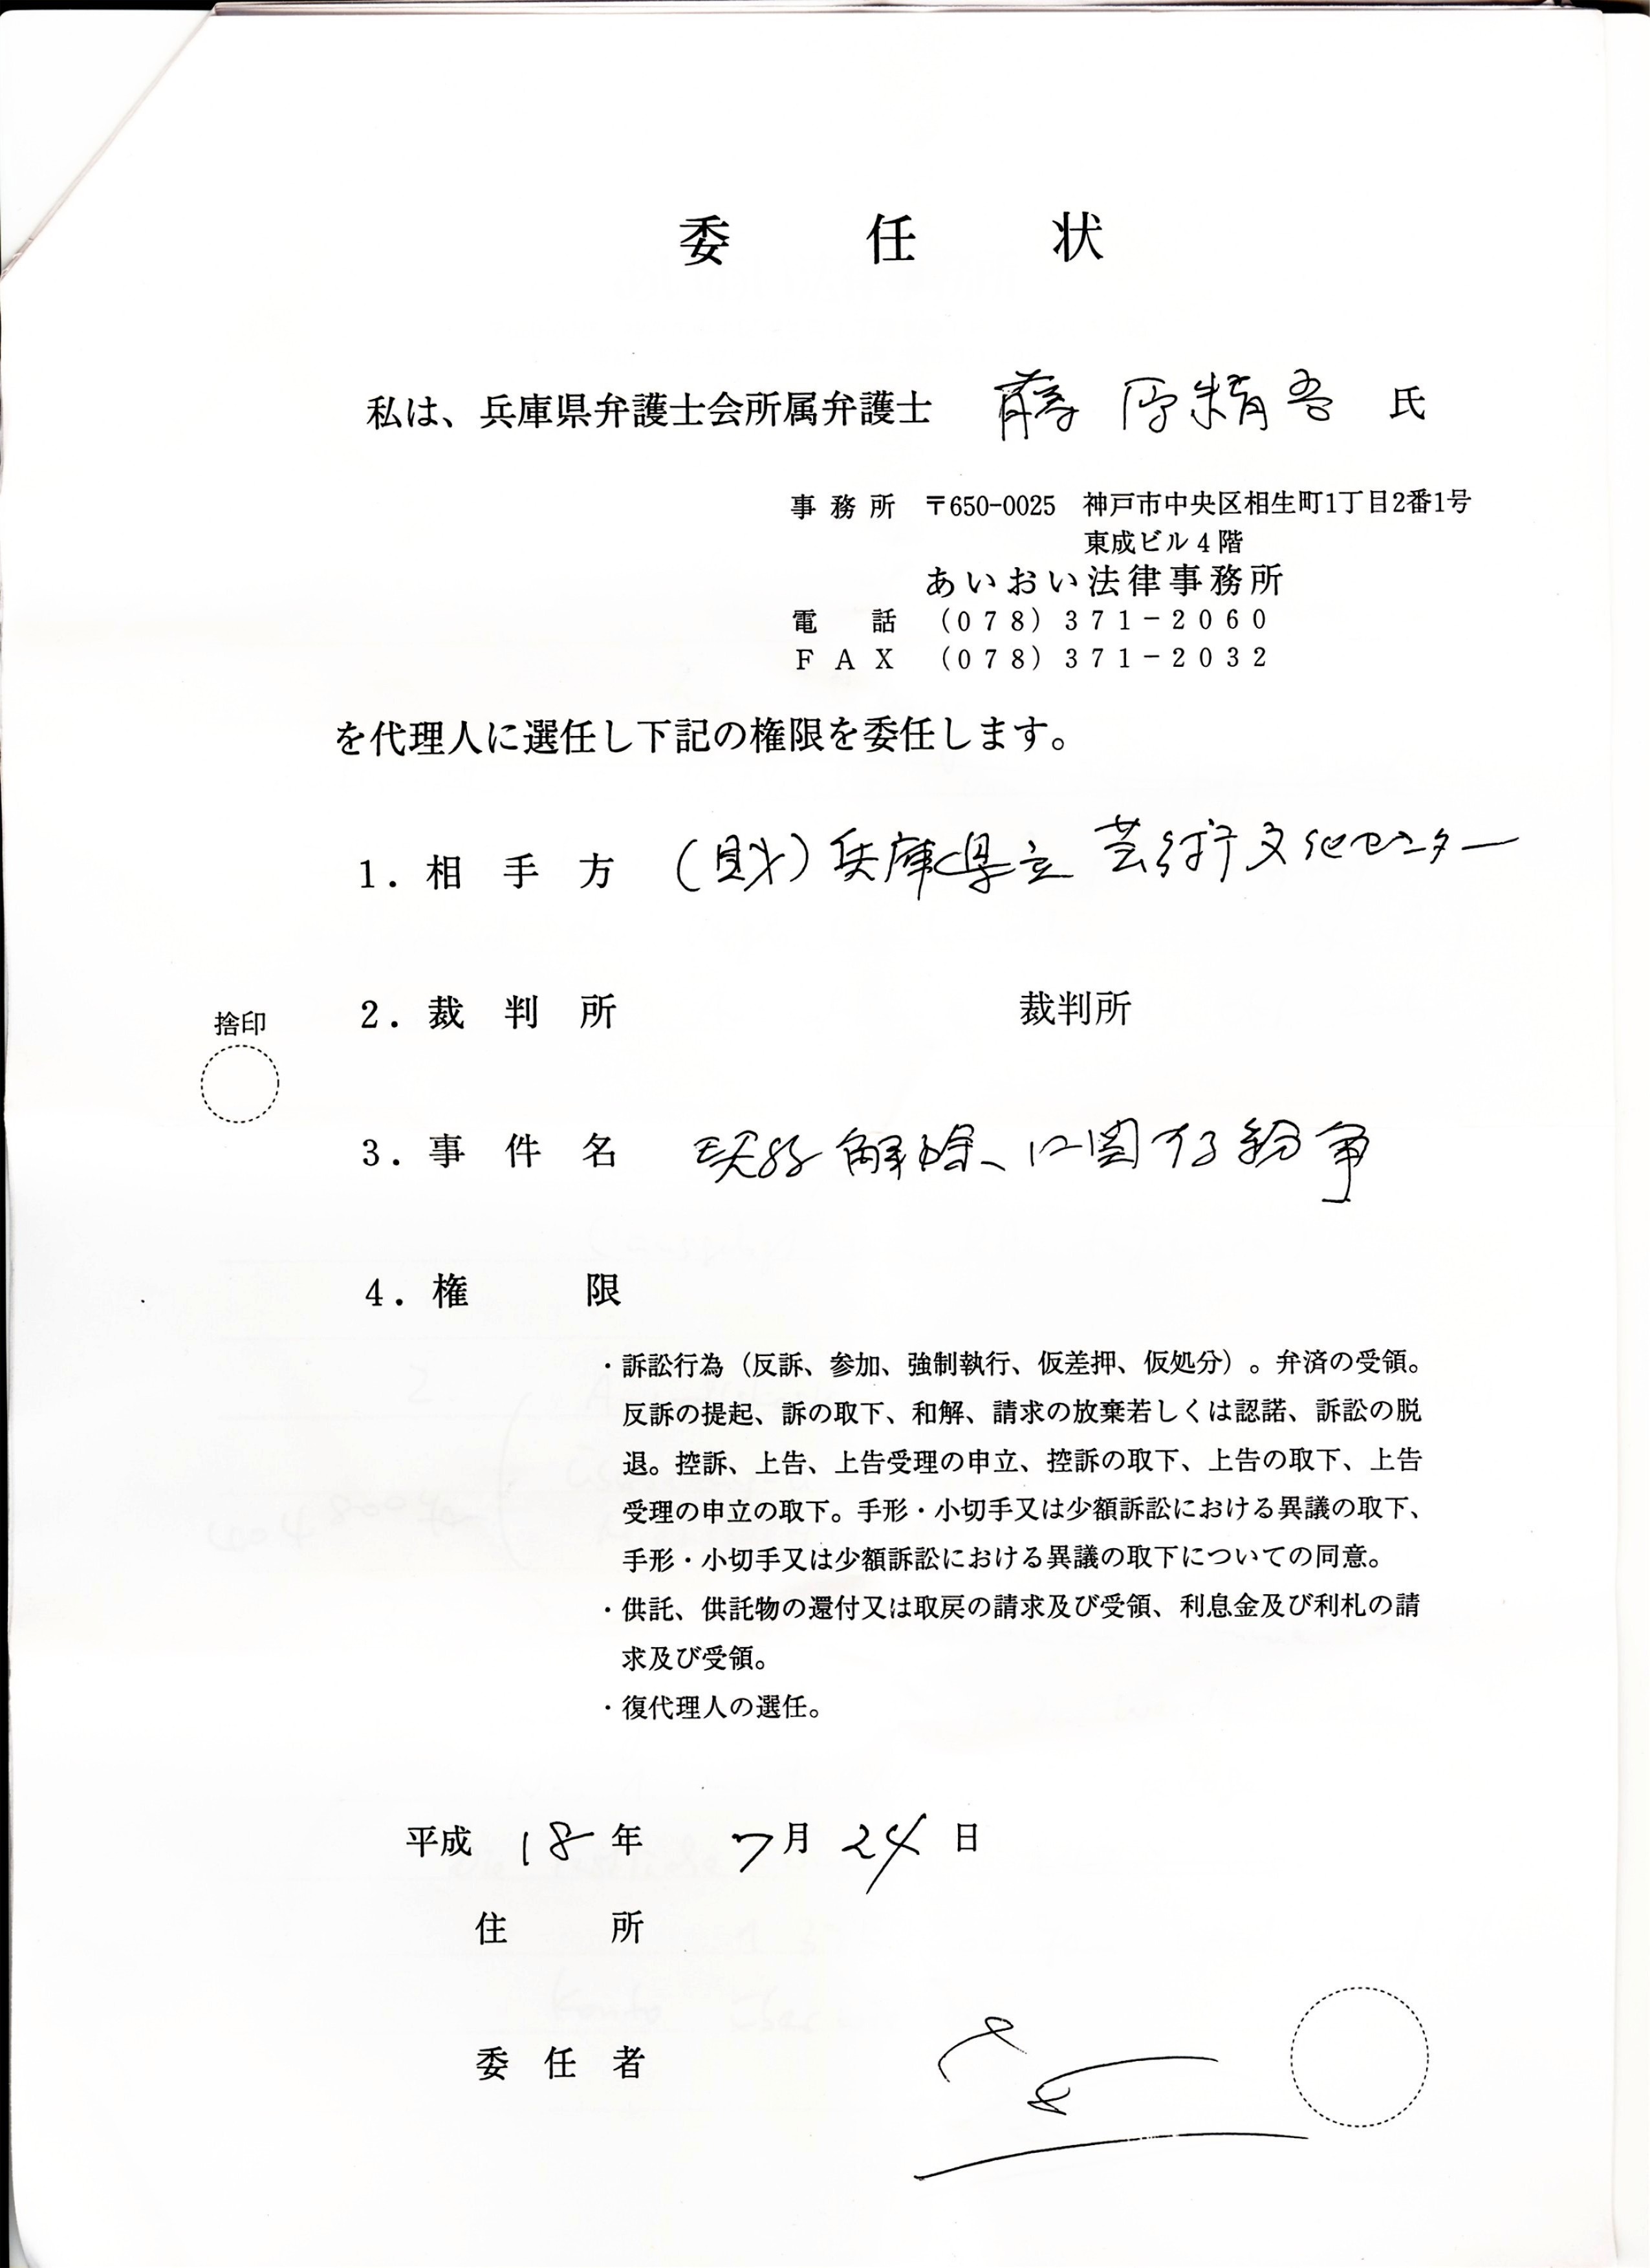 委任状
私は、兵庫県弁護士会所属弁護士 藤原精吾 氏
事務所 〒650-0025 神戸市中央区相生町1丁目2番1号
東成ビル4階
あいおい法律事務所
電話 (078)371-2060
FAX (078)371-2032
を代理人に選任し下記の権限を委任します。
1.相手方 (財)兵庫県立芸術文化センター
2.裁判所 裁判所
捨印
3.事件名 契約解除に関する紛争
4.権限
・訴訟行為(反訴、参加、強制執行、仮差押、仮処分)。弁済の受領。
反訴の提起、訴の取下、和解、請求の放棄若しくは認諾、訴訟の脱
退。控訴、上告、上告受理の申立、控訴の取下、上告の取下、上告
受理の申立の取下。手形・小切手又は少額訴訟における異議の取下、
手形・小切手又は少額訴訟における異議の取下についての同意。
・供託、供託物の還付又は取戻の請求及び受領、利息金及び利札の請
求及び受領。
・復代理人の選任。
平成18年 7月24日
住所
委任者